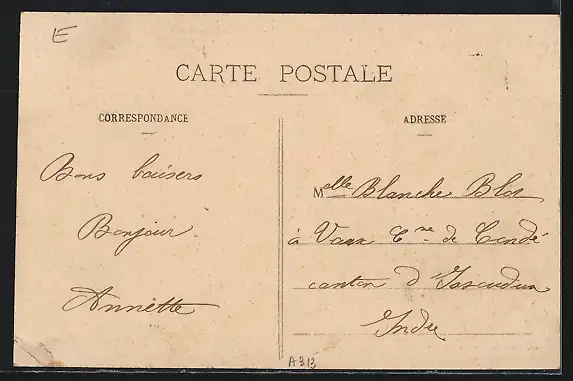 E
CARTE POSTALE
CORRESPONDANCE
Bons baisers
Bonjour
Annette
ADRESSE
Melle Blanche Blos
à Vaux Cne de Condé
canton d'Issoudun
Indre
A 313